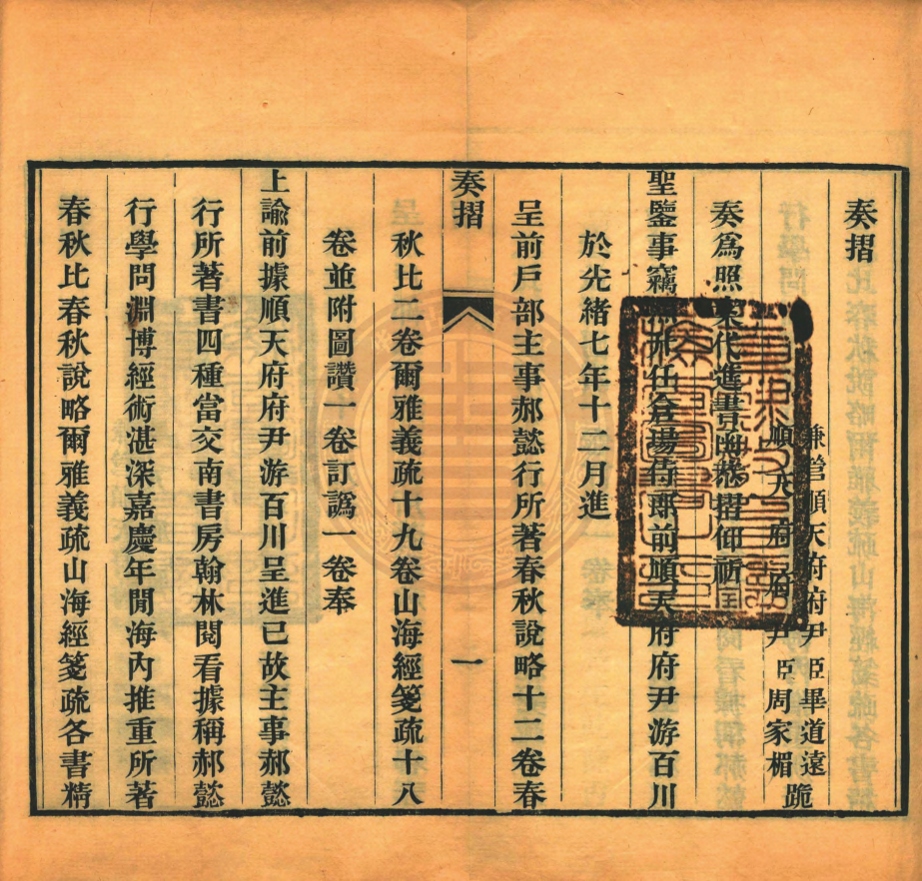 奏摺
兼管順天府府尹臣畢道遠
順天府府尹臣周家楣
跪
奏為照案代進書函恭摺仰祈
聖鑒事竊前任倉場侍郎前順天府府尹游百川
於光緒七年十二月進
呈前戶部主事郝懿行所著春秋說略十二卷春
奏摺
一
秋比二卷爾雅義疏十九卷山海經箋疏十八
卷並附圖讚一卷訂譌一卷奉
上諭前據順天府府尹游百川呈進已故主事郝懿
行所著書四種當交南書房翰林閱看據稱郝懿
行學問淵博經術湛深嘉慶年閒海內推重所著
春秋比春秋說略爾雅義疏山海經箋疏各書精